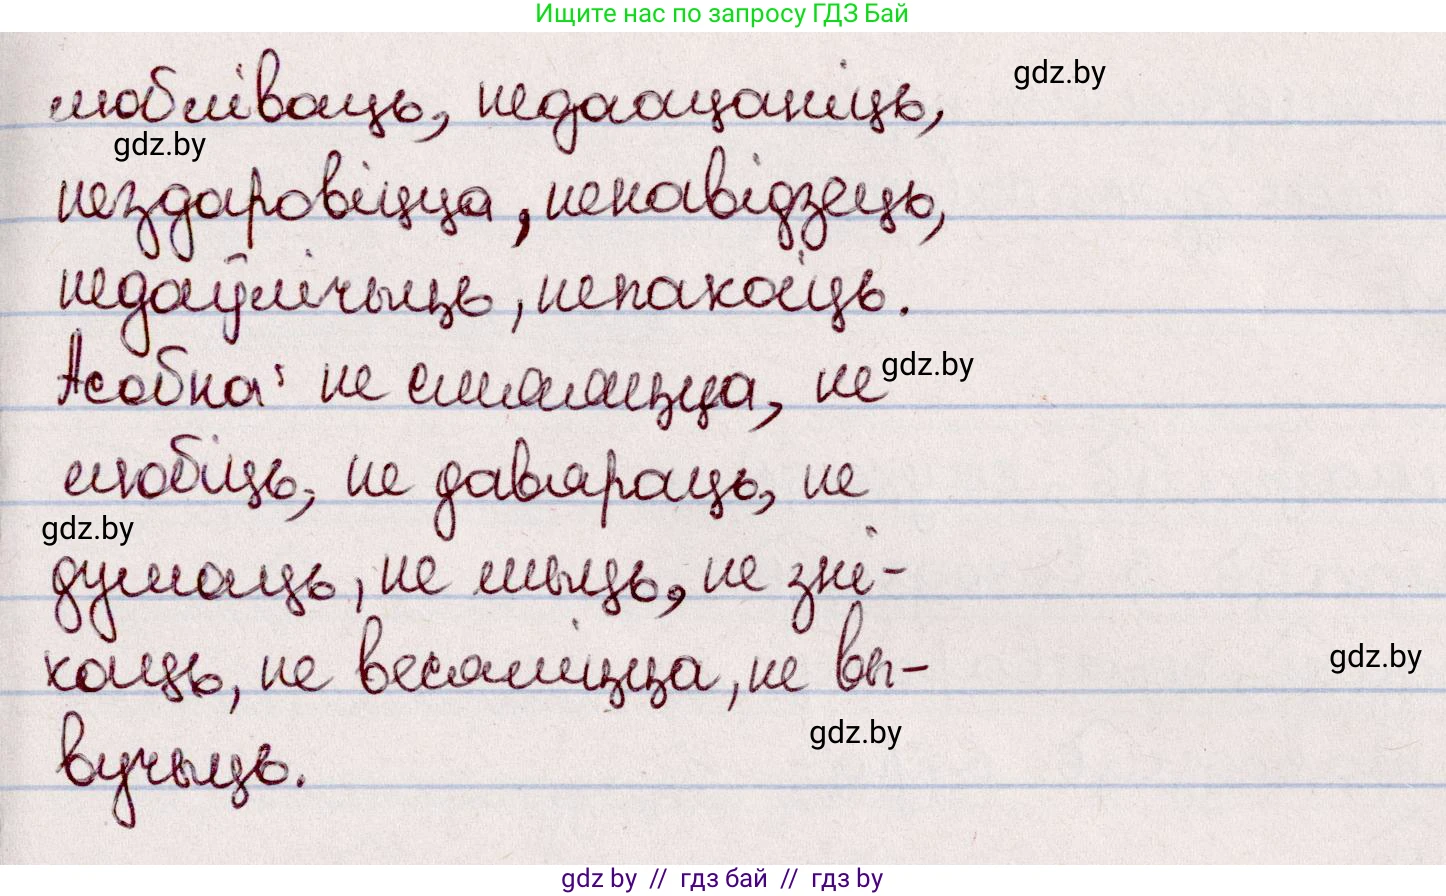 Ищите нас по запросу ГДЗ Бай
gdz.by
любліваць, недаацаніць,
gdz.by
нездаровіцца, ненавідзець,
недаўлічыць, непакоіць.
Асобна: не смяяцца, не
gdz.by
любіць, не давяраць, не
gdz.by
думаць, не мыць, не зні-
каць, не весяліцца, не вы-
gdz.by
вучыць.
gdz.by
gdz by // гдз бай // гдз by